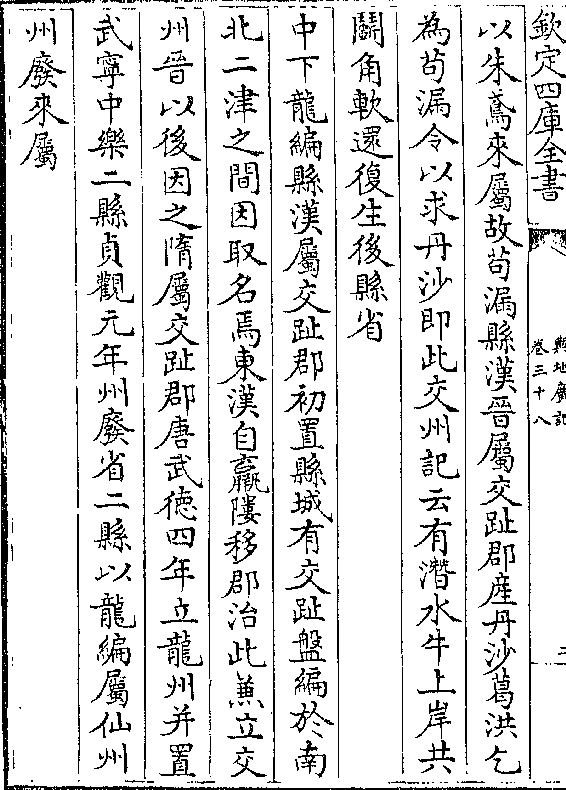 欽定四庫全書
輿地廣記
卷三十八
以朱鳶來屬故茍漏縣漢晉屬交趾郡産丹沙葛洪乞
為茍漏令以求丹沙即此交州記云有潛水牛上岸共
鬭角軟還復生後縣省
中下龍編縣漢屬交趾郡初置縣城有交趾盤編於南
北二津之間因取名焉東漢自羸𨻻移郡治此兼立交
州晉以後因之隋屬交趾郡唐武徳四年立龍州并置
武寧中樂二縣貞觀元年州廢省二縣以龍編屬仙州
州廢來屬